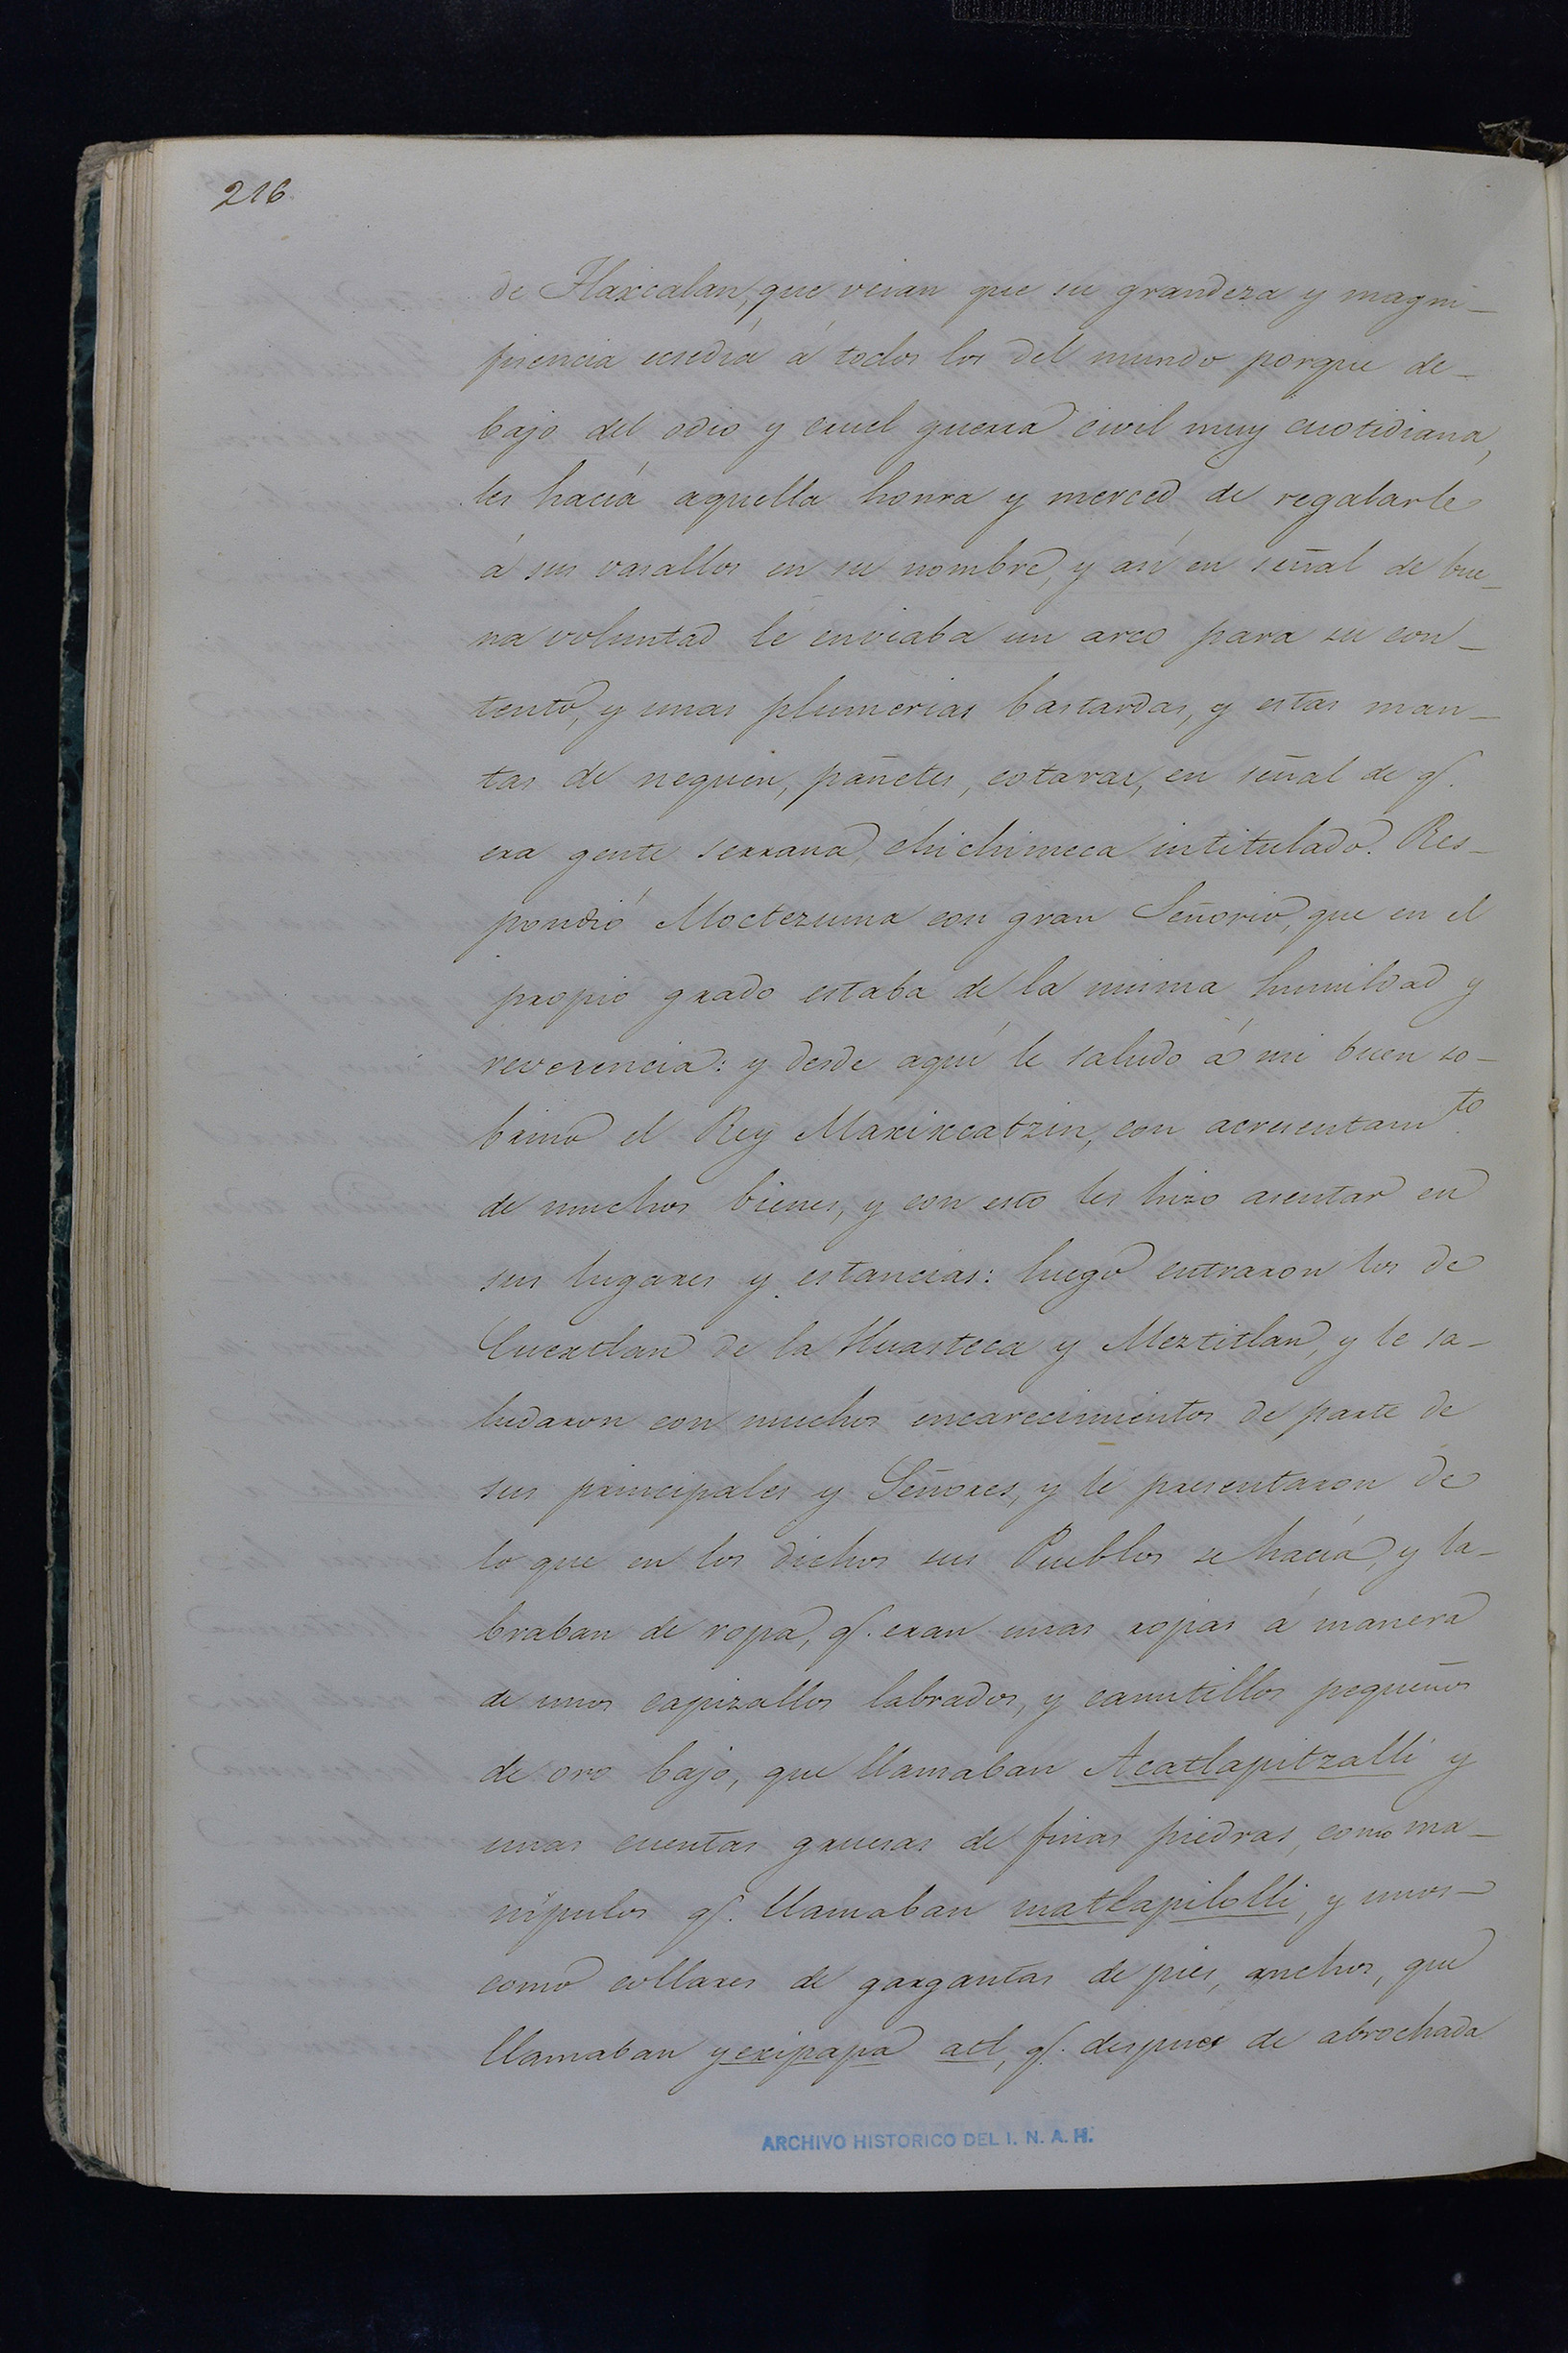 216
de Tlaxcalan, que veian que su grandeza y magni-
ficencia ecsedía á todos los del mundo porque de-
bajo del odio y cruel guerra civil muy cuotidiana,
les hacía aquella honra y merced de regalarle
á sus vasallos en su nombre, y así en señal de bue-
na voluntad le enviaba un arco para su con-
tento, y unas plumerias bastardas, y estas man-
tas de nequen, pañetes, cotaras, en señal de q.
era gente serrana, chichimeca intitulado. Res-
pondió Moctezuma con gran Señorio, que en el
propio grado estaba de la misma humildad y
reverencia: y desde aquí le saludo á mi buen so-
brino el Rey Maxixcatzin, con acrecentam.to
de muchos bienes, y con esto les hizo asentar en
sus lugares y estancias: luego entraron los de
Cuextlan de la Huasteca y Meztitlan, y le sa-
ludaron con muchos encarecimientos de parte de
sus principales y Señores, y le presentaron de
lo que en los dichos sus Pueblos se hacía, y la-
braban de ropa, q. eran unas ropas á manera
de unos capizallos labrados, y canutillos pequeños
de oro bajo, que llamaban Acatlapitzalli y
unas cuentas gruesas de finas piedras, como ma-
nípulos q. llamaban matlapilolli, y unos
como collares de gargantas de pies, anchos, que
llamaban yexipapa atl, q. despues de abrochada
ARCHIVO HISTORICO DEL I. N. A. H.